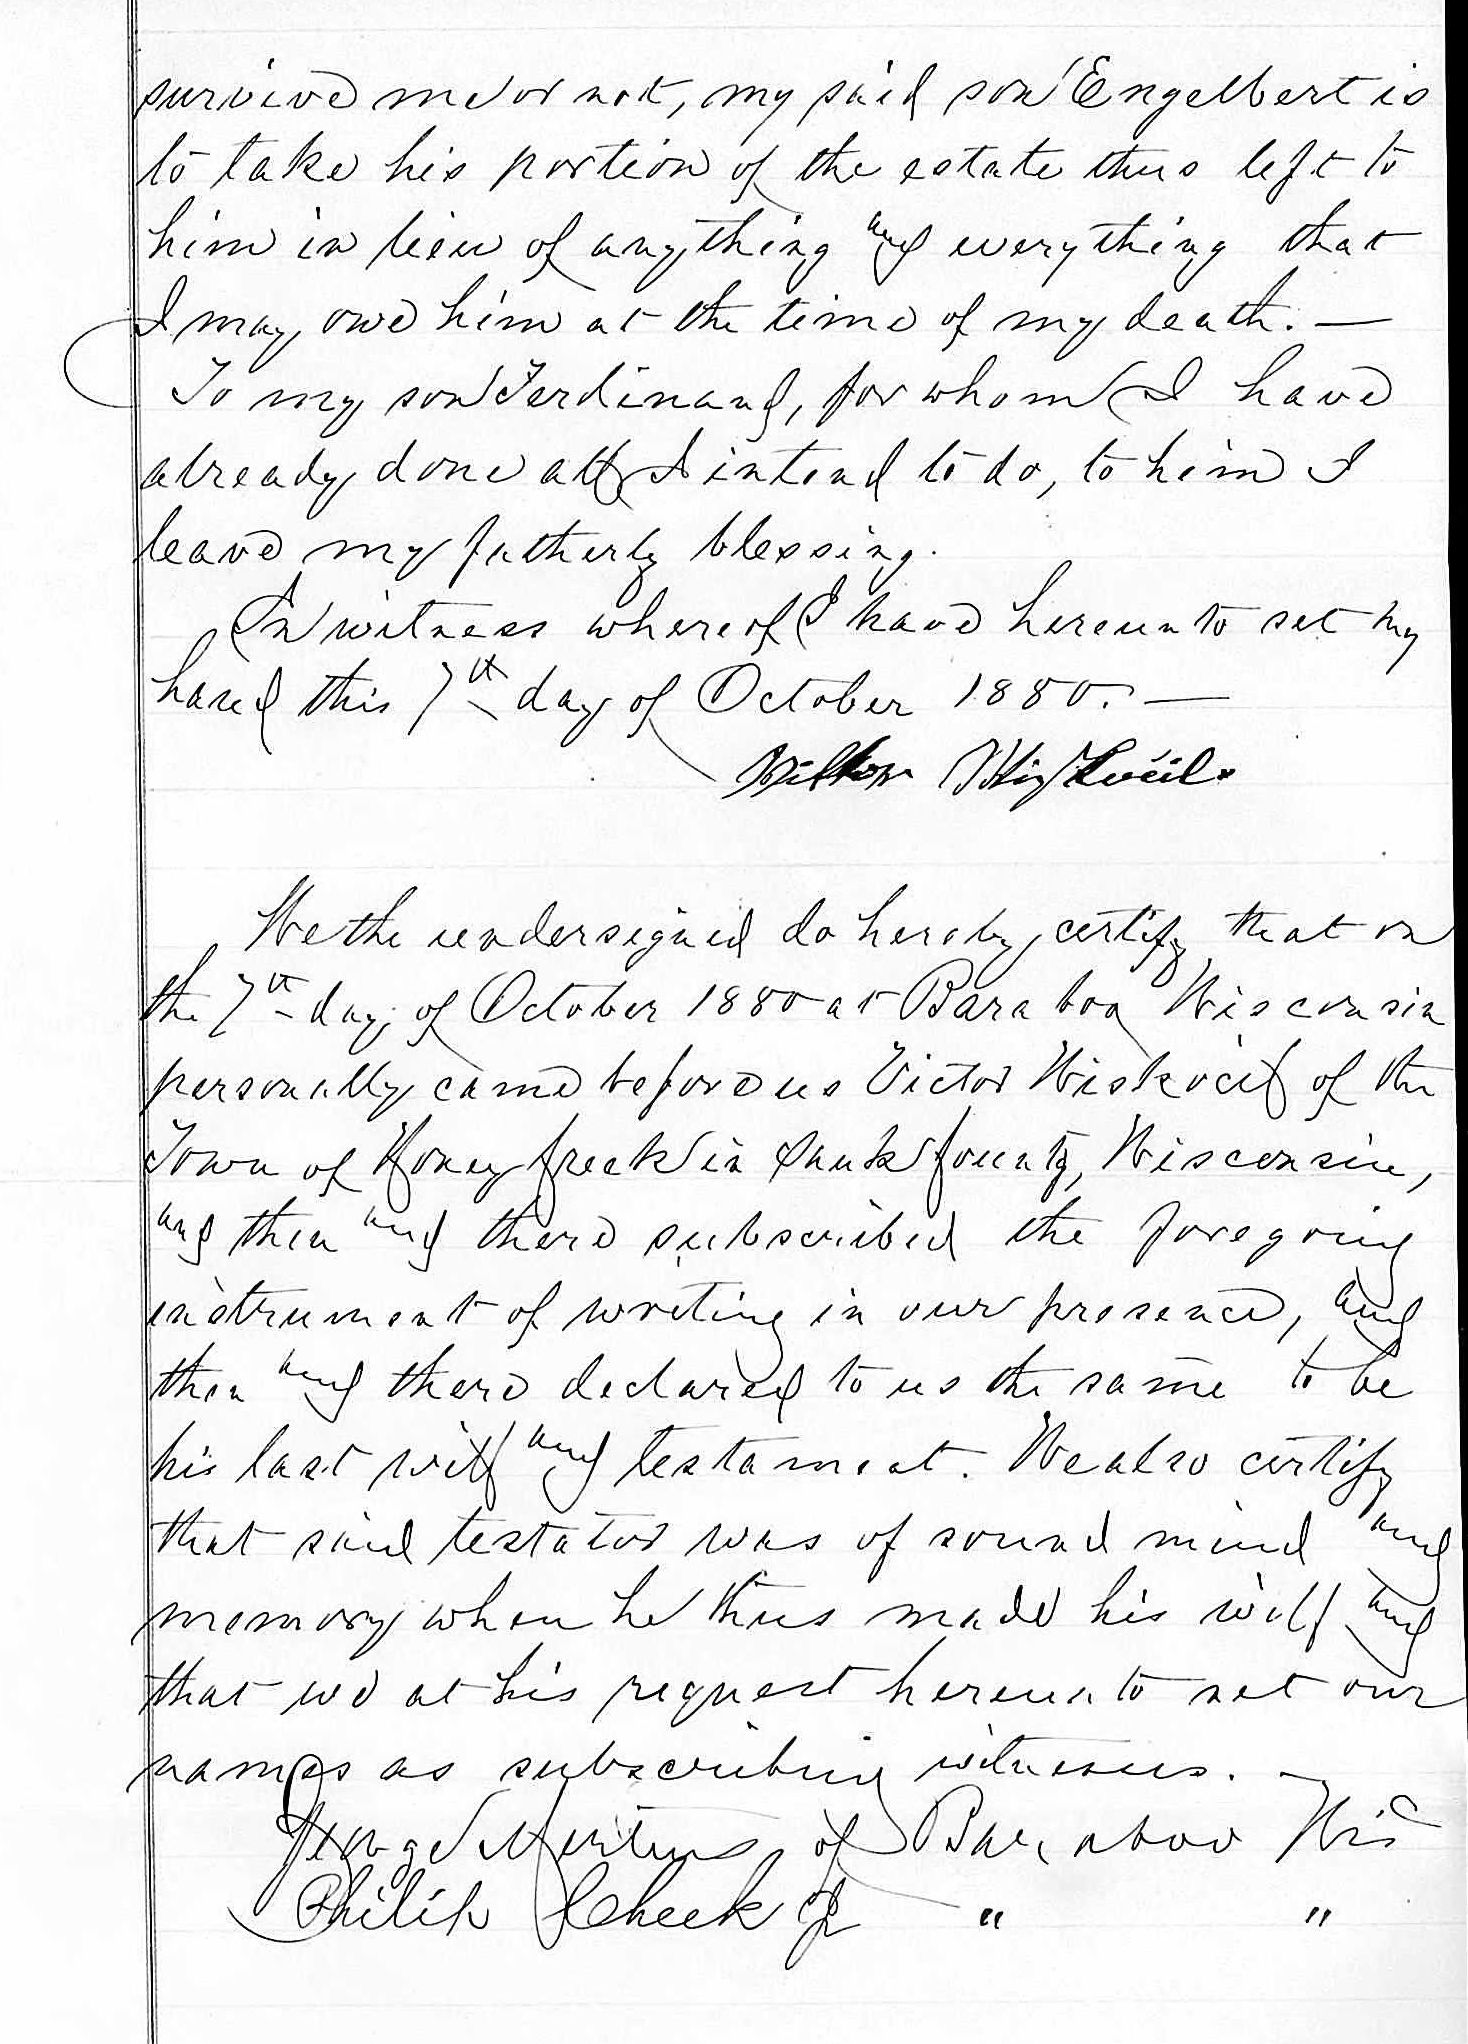 survive me or not, my said son Engelbert is
to take his portion of the estate thus left to
him in lieu of anything and everything that
I may owe him at the time of my death. —
To my son Ferdinand, for whom I have
already done all I intend to do, to him I
leave my fatherly blessing.
In witness whereof I have hereunto set my
hand this 7th day of October 1880. —
We the undersigned do hereby certify that on
the 7th day of October 1880 at Baraboo Wisconsin
personally came before us Victor Wiskocil of the
Town of Honey Creek in Sauk County, Wisconsin,
and then and there subscribed the foregoing
instrument of writing in our presence, and
then and there declared to us the same to be
his last will and testament. We also certify
that said testator was of sound mind and
memory when he thus made his will and
that we at his request hereunto set our
names as subscribing witnesses. —
George Mertens of Baraboo Wis
Philip Cheek Jr " "